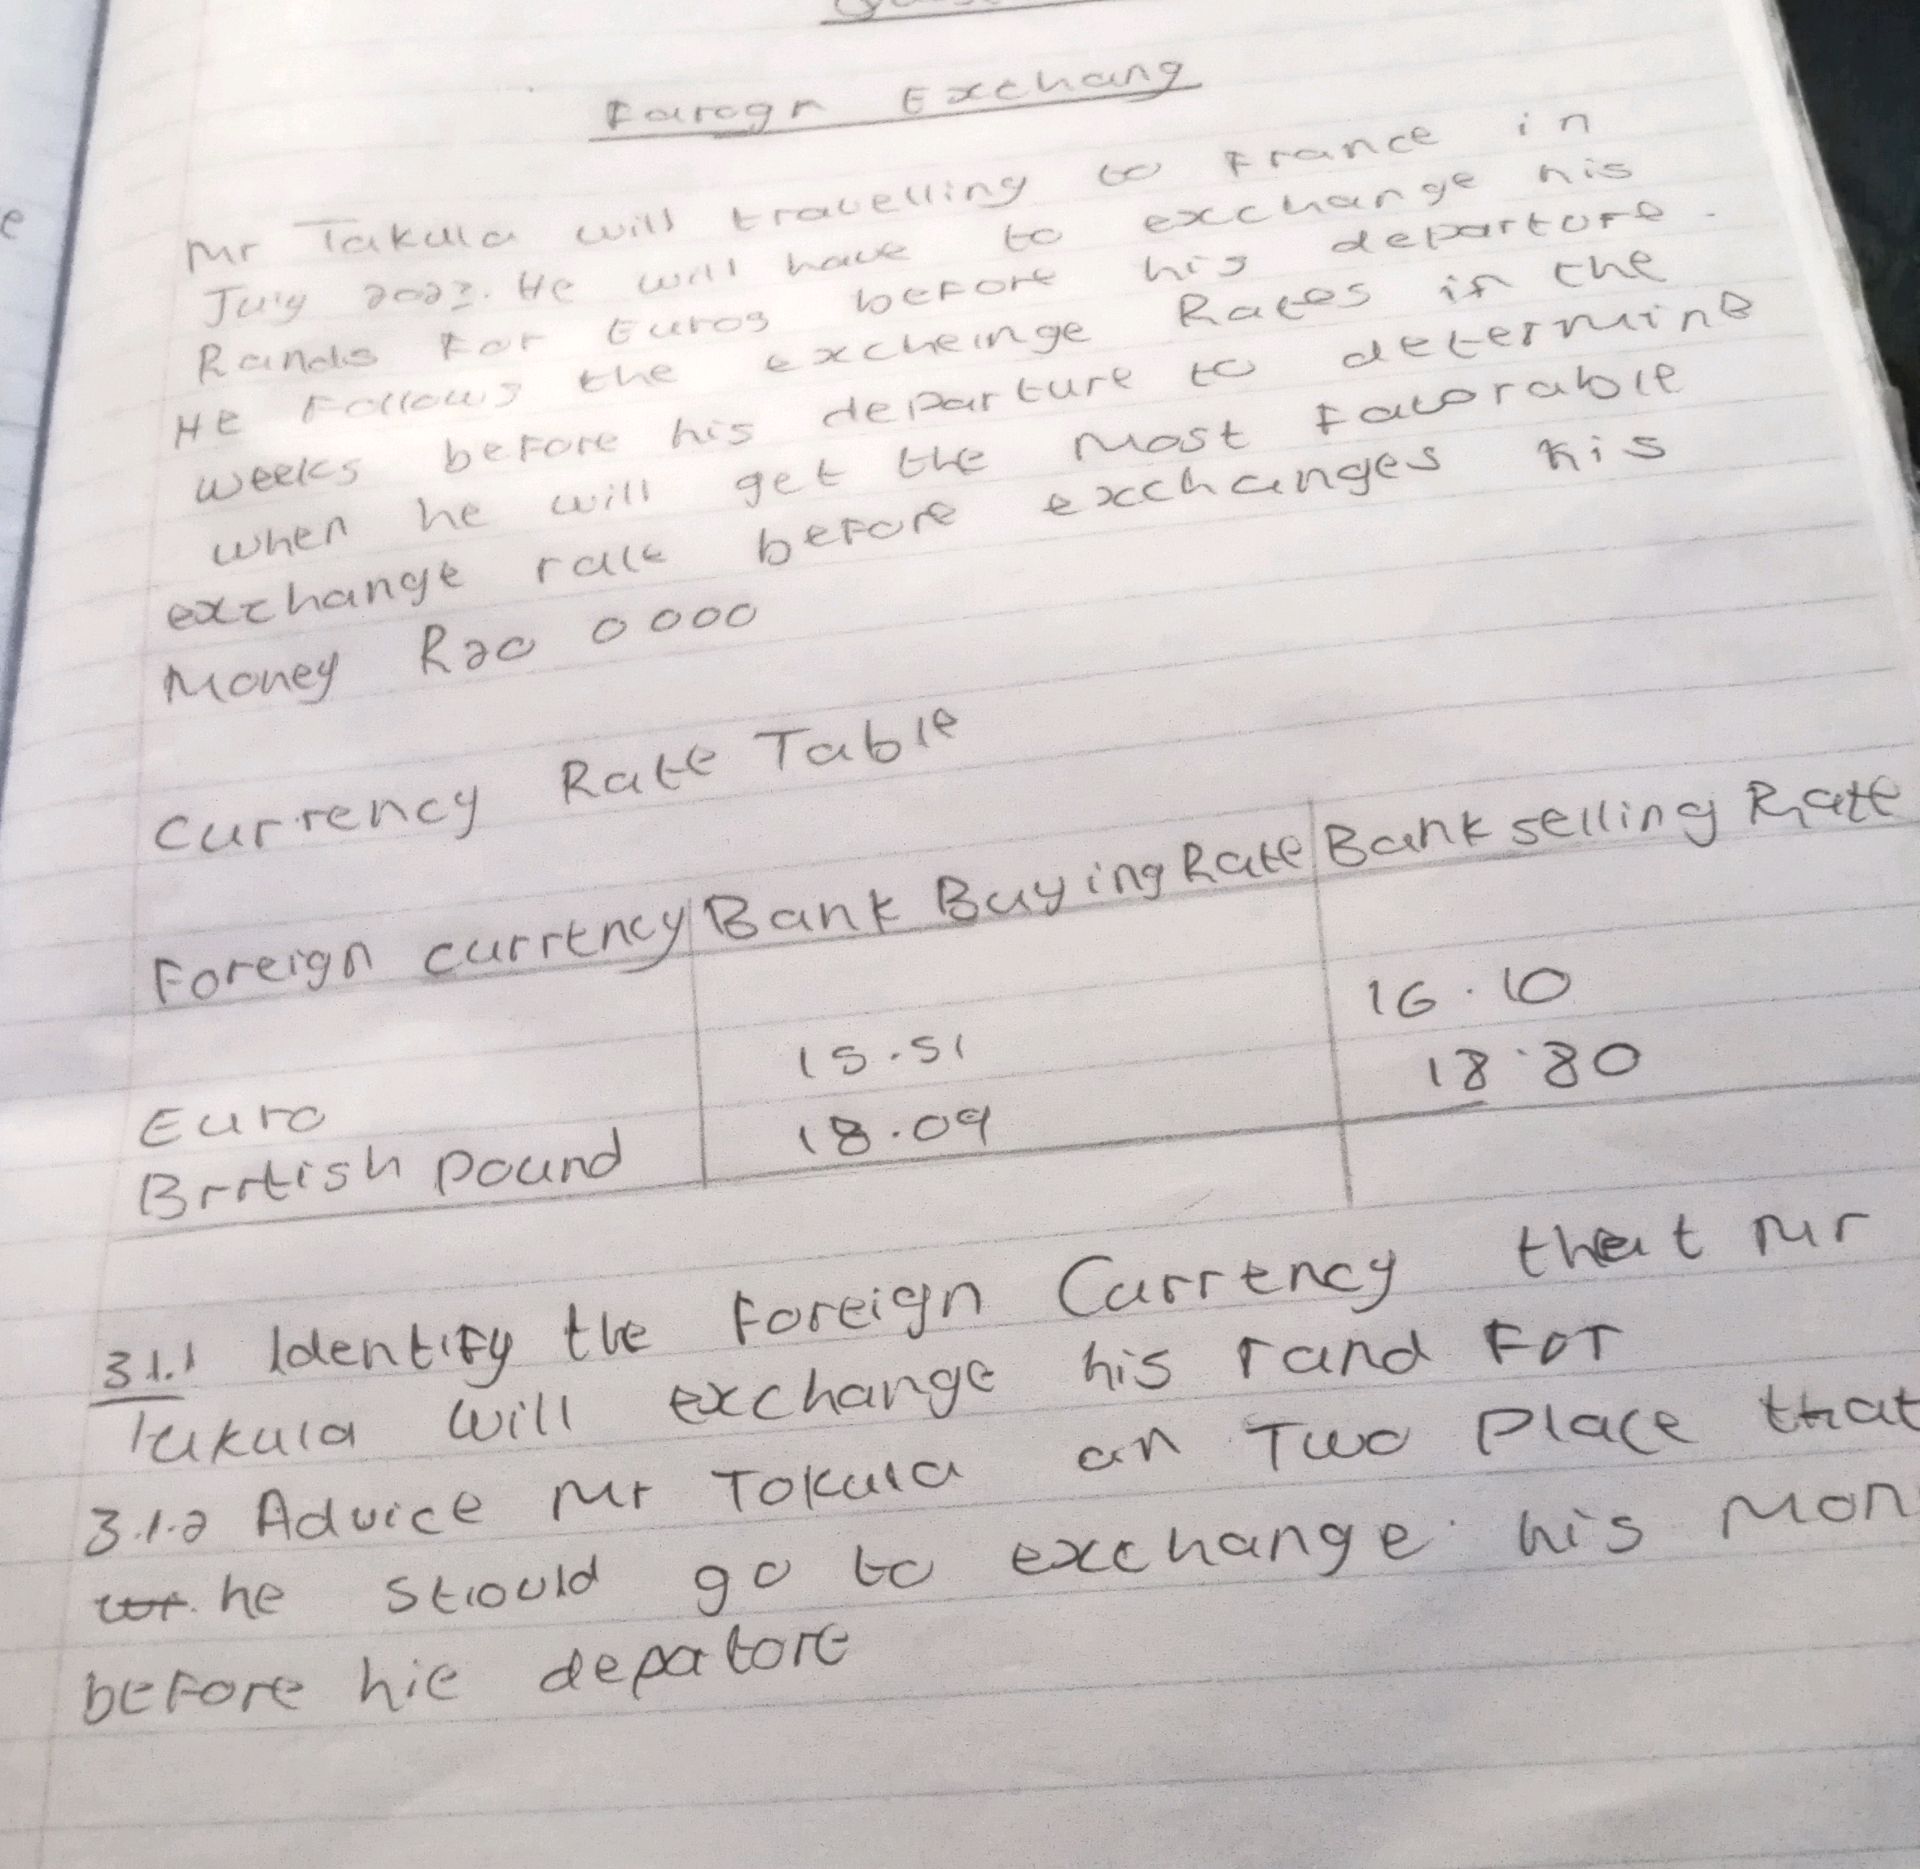 Farogn Exchang
Mr Takula will travelling to France in
July 2023. He will have to exchange his
Rands For Euros before his departure.
He Follows the excheinge Rates in the
weeks before his departure to determine
when he will get the most Favorable
exchange rate before exchanges his
Money R20 0000
Currency Rate Table
Foreign currency Bank Buying Rate Bank selling Rate
Euro 15.51 16.10
Brrtish pound 18.09 18.80
3.1.1 Identify the Foreign Currency that Mr
Takula will exchange his rand For
3.1.2 Advice Mr Tokula an Two Place that
he should go to exchange his Mon
before hie depatore